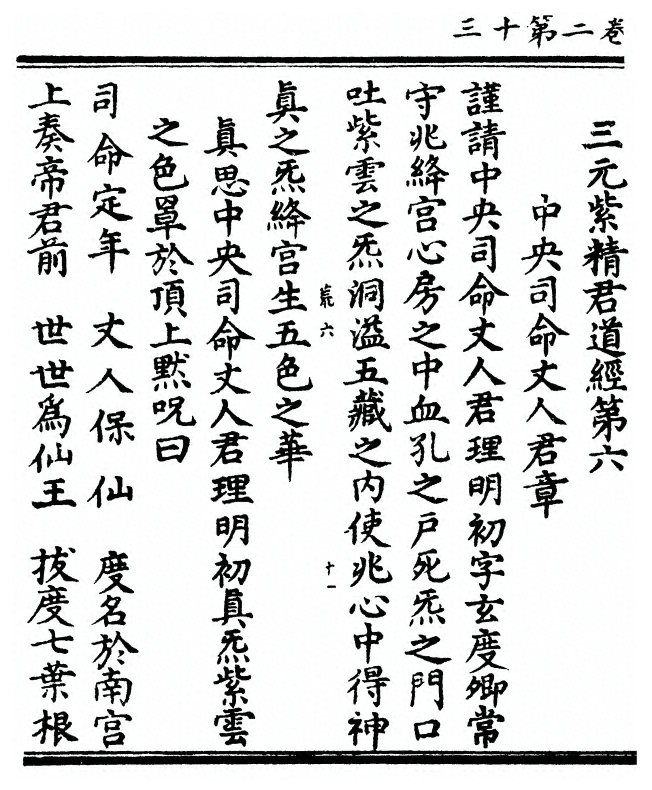 卷二第十三
三元紫精君道經第六
中央司命丈人君章
謹請中央司命丈人君理明初字玄度卿常
守兆絳宮心房之中血孔之戶死炁之門口
吐紫雲之炁洞溢五藏之內使兆心中得神
十一
真之炁絳宮生五色之華
真思中央司命丈人君理明初真炁紫雲
之色罩於頂上默呪曰
司命定年　丈人保仙　度名於南宮
上奏帝君前　世世為仙王　拔度七葉根